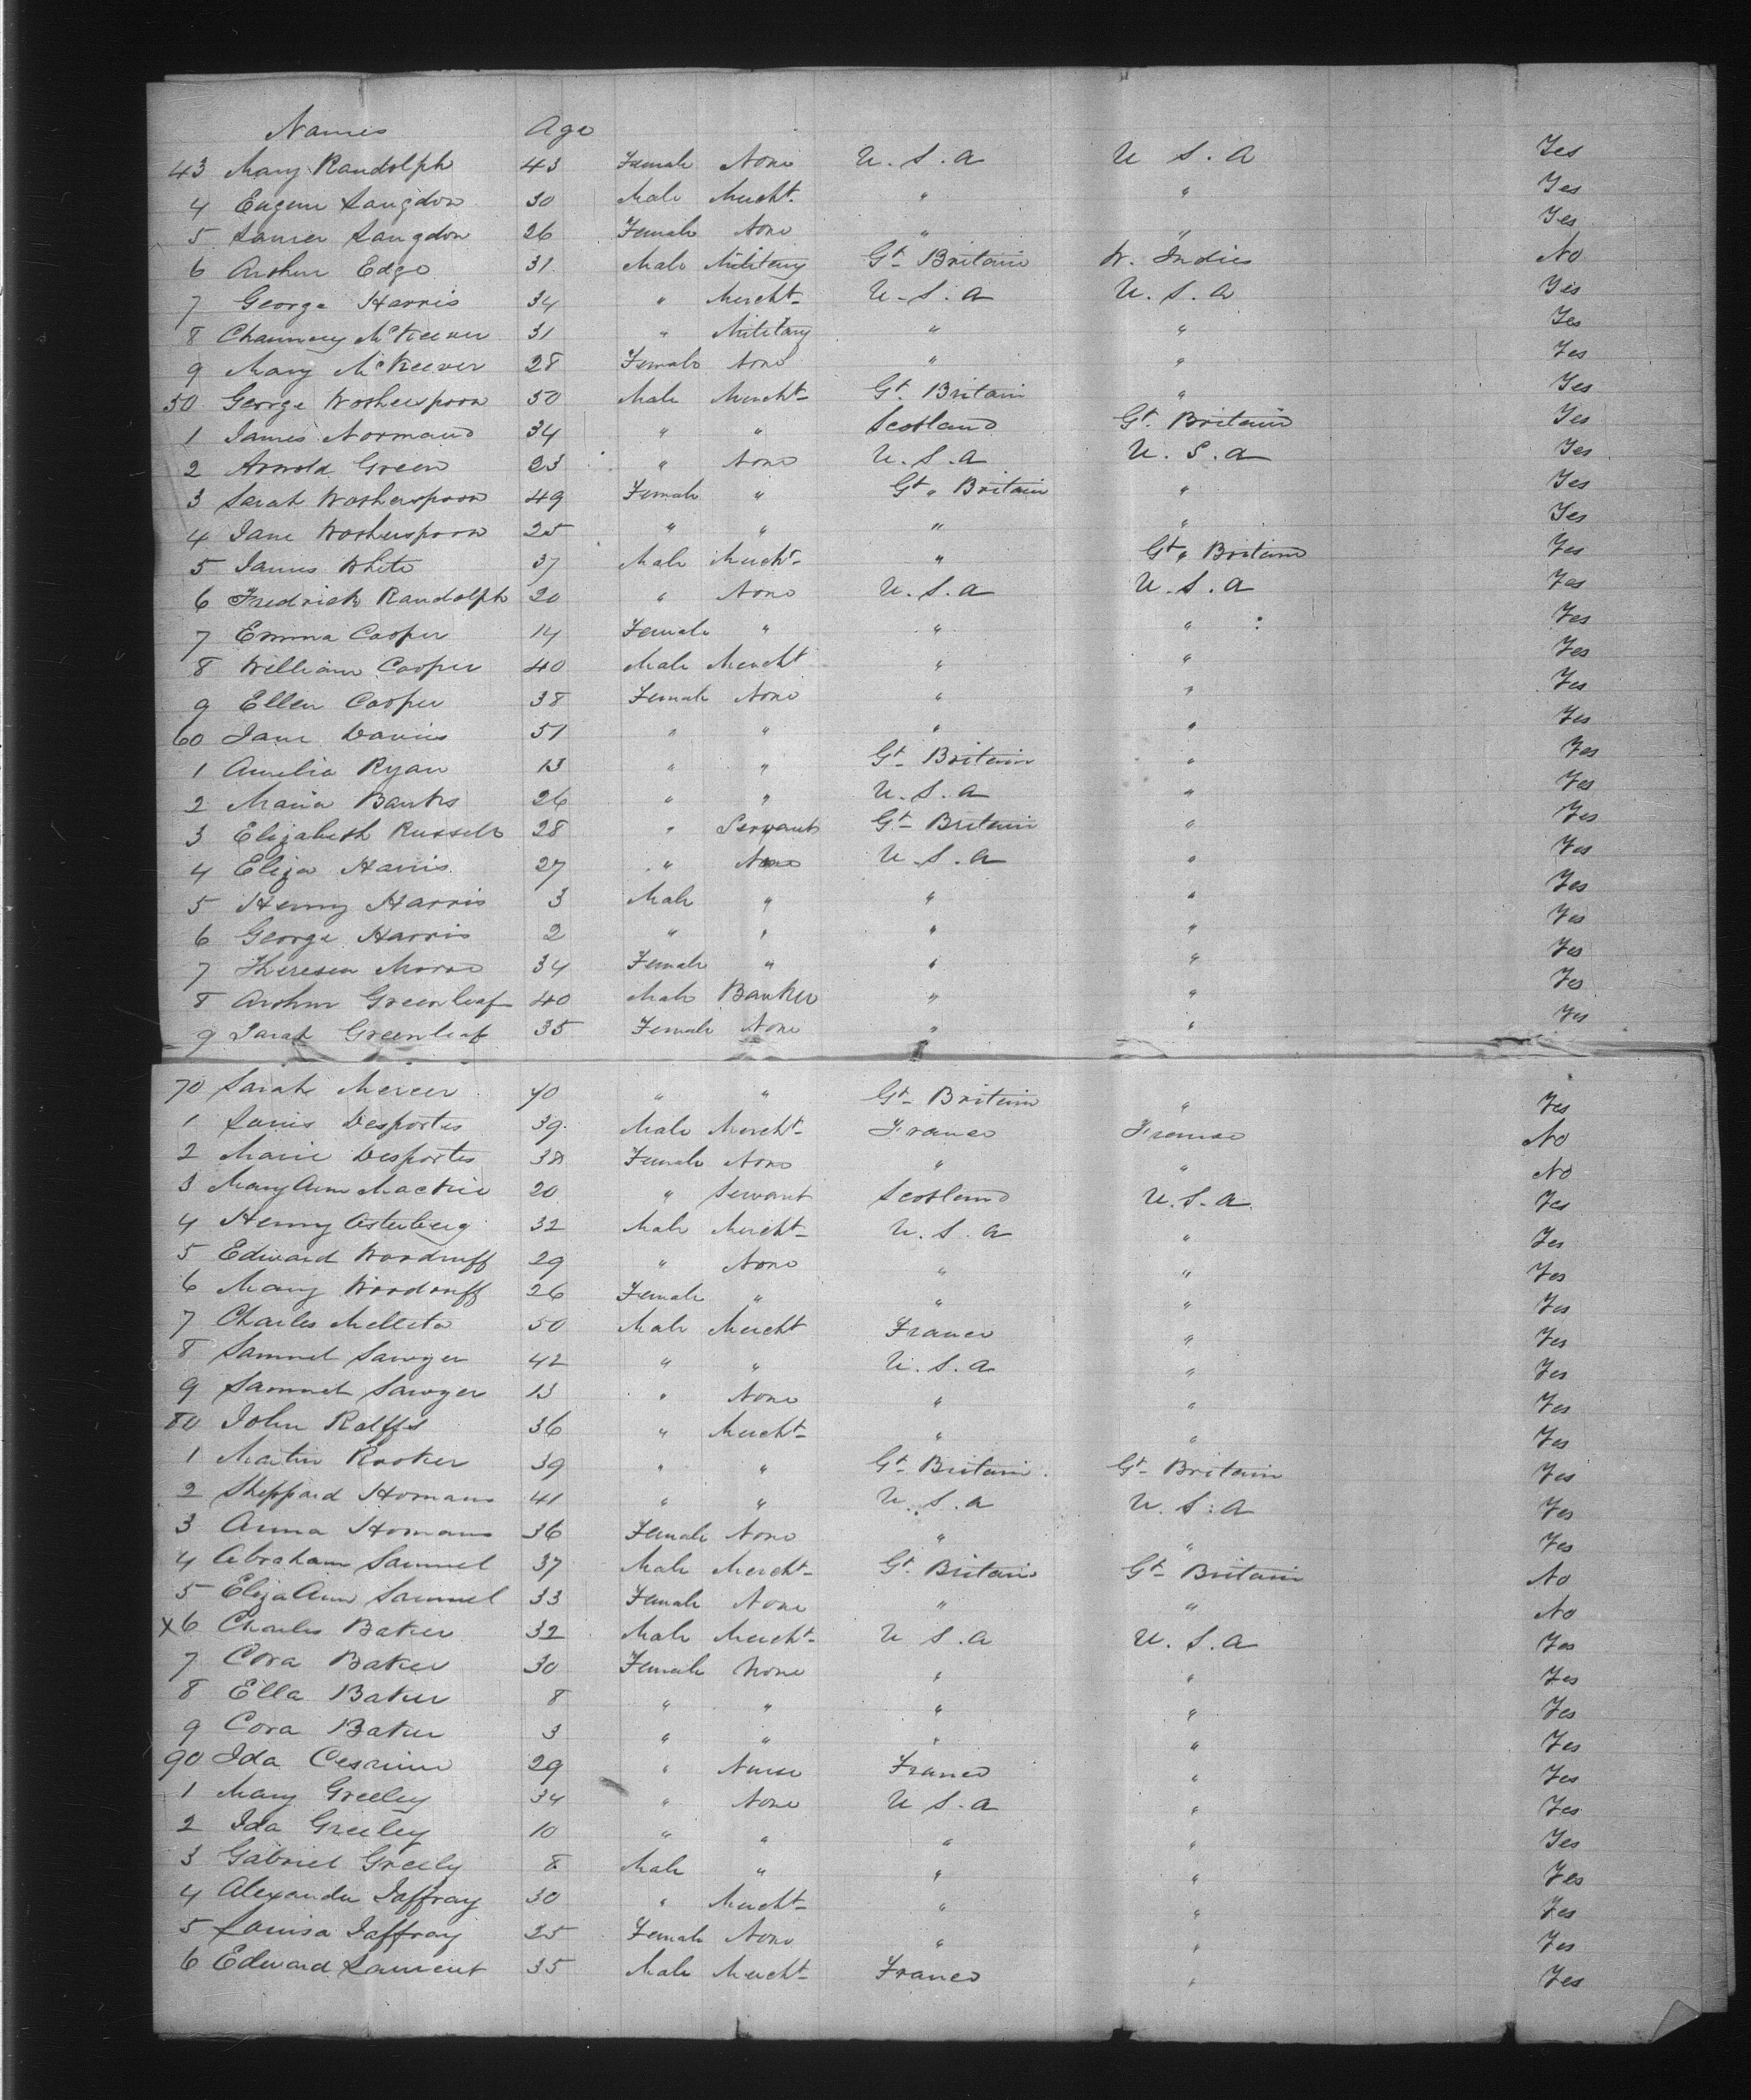 Names Age
43 Mary Randolph 43 Female None U. S. A U S. A Yes
4 Eugene Langdon 30 Male Mercht. " " Yes
5 Langdon 26 Female None " " Yes
6 Arthur Edge 31 Male Military Gt Britain W. Indies No
7 George Harris 34 " Mercht U. S. A U. S. A Yes
8 Chauncey McKeever 31 " Military " " Yes
9 Mary McKeever 28 Female None " " Yes
50 George Wotherspoon 50 Male Mercht Gt. Britain " Yes
1 James Normand 34 " " Scotland Gt. Britain Yes
2 Arnold Green 23 " None U. S. A U. S. A Yes
3 Sarah Wotherspoon 49 Female " Gt " Britain " Yes
4 Jane Wotherspoon 25 " " " " Yes
5 James White 37 Male Mercht " Gt " Britain Yes
6 Fredrick Randolph 20 " None U. S. A U. S. A Yes
7 Emma Cooper 14 Female " " " Yes
8 William Cooper 40 Male Mercht " " Yes
9 Ellen Cooper 38 Female None " " Yes
60 Jane Davies 51 " " " " Yes
1 Amelia Ryan 13 " " Gt Britain " Yes
2 Maria Banks 26 " " U. S. A " Yes
3 Elizabeth Russell 28 " Servant Gt Britain " Yes
4 Eliza Harris 27 " None U. S. A " Yes
5 Henry Harris 3 Male " " " Yes
6 George Harris 2 " " " " Yes
7 Theresea 34 Female " " " Yes
8 Arthur Greenleaf 40 Male Banker " " Yes
9 Sarah Greenleaf 35 Female None " " Yes
70 Sarah Mercer 40 " " Gt Britain " Yes
1 Louis Desportes 39 Male Mercht France France No
2 Marie Desportes 38 Female None " " No
3 Mary Ann Mackie 20 " Servant Scotland U. S. A Yes
4 Henry Asterberg 32 Male Mercht U. S. A " Yes
5 Edward Woodruff 29 " None " " Yes
6 Mary Woodruff 26 Female " " " Yes
7 Charles 50 Male Mercht France " Yes
8 Samuel Sawyer 42 " " U. S. A " Yes
9 Samuel Sawyer 13 " None " " Yes
80 John Ralffs 36 " Mercht " " Yes
1 Martin Rooker 39 " " Gt Britain Gt Britain Yes
2 Sheppard Homans 41 " " U. S. A U. S. A Yes
3 Anna Homans 36 Female None " " Yes
4 Abraham Samuel 37 Male Mercht Gt Britain Gt Britain No
5 Eliza Ann Samuel 33 Female None " " No
X6 Charles Baker 32 Male Mercht U S. A U. S. A Yes
7 Cora Baker 30 Female None " " Yes
8 Ella Baker 8 " " " " Yes
9 Cora Baker 3 " " " " Yes
90 Ida 29 " Nurse France " Yes
1 Mary Greeley 34 " None U S. A " Yes
2 Ida Greeley 10 " " " " Yes
3 Gabriel Greely 8 Male " " " Yes
4 Alexander Jaffray 30 " Mercht " " Yes
5 Louisa Jaffray 25 Female None " " Yes
6 Edward Laurent 35 Male Mercht France " Yes